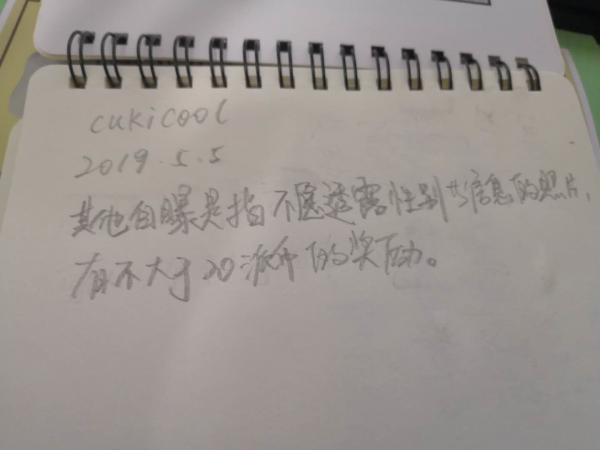 cukicool
2019.5.5
其他自曝是指不愿透露性别等信息的照片，
有不大于20派币的奖励。